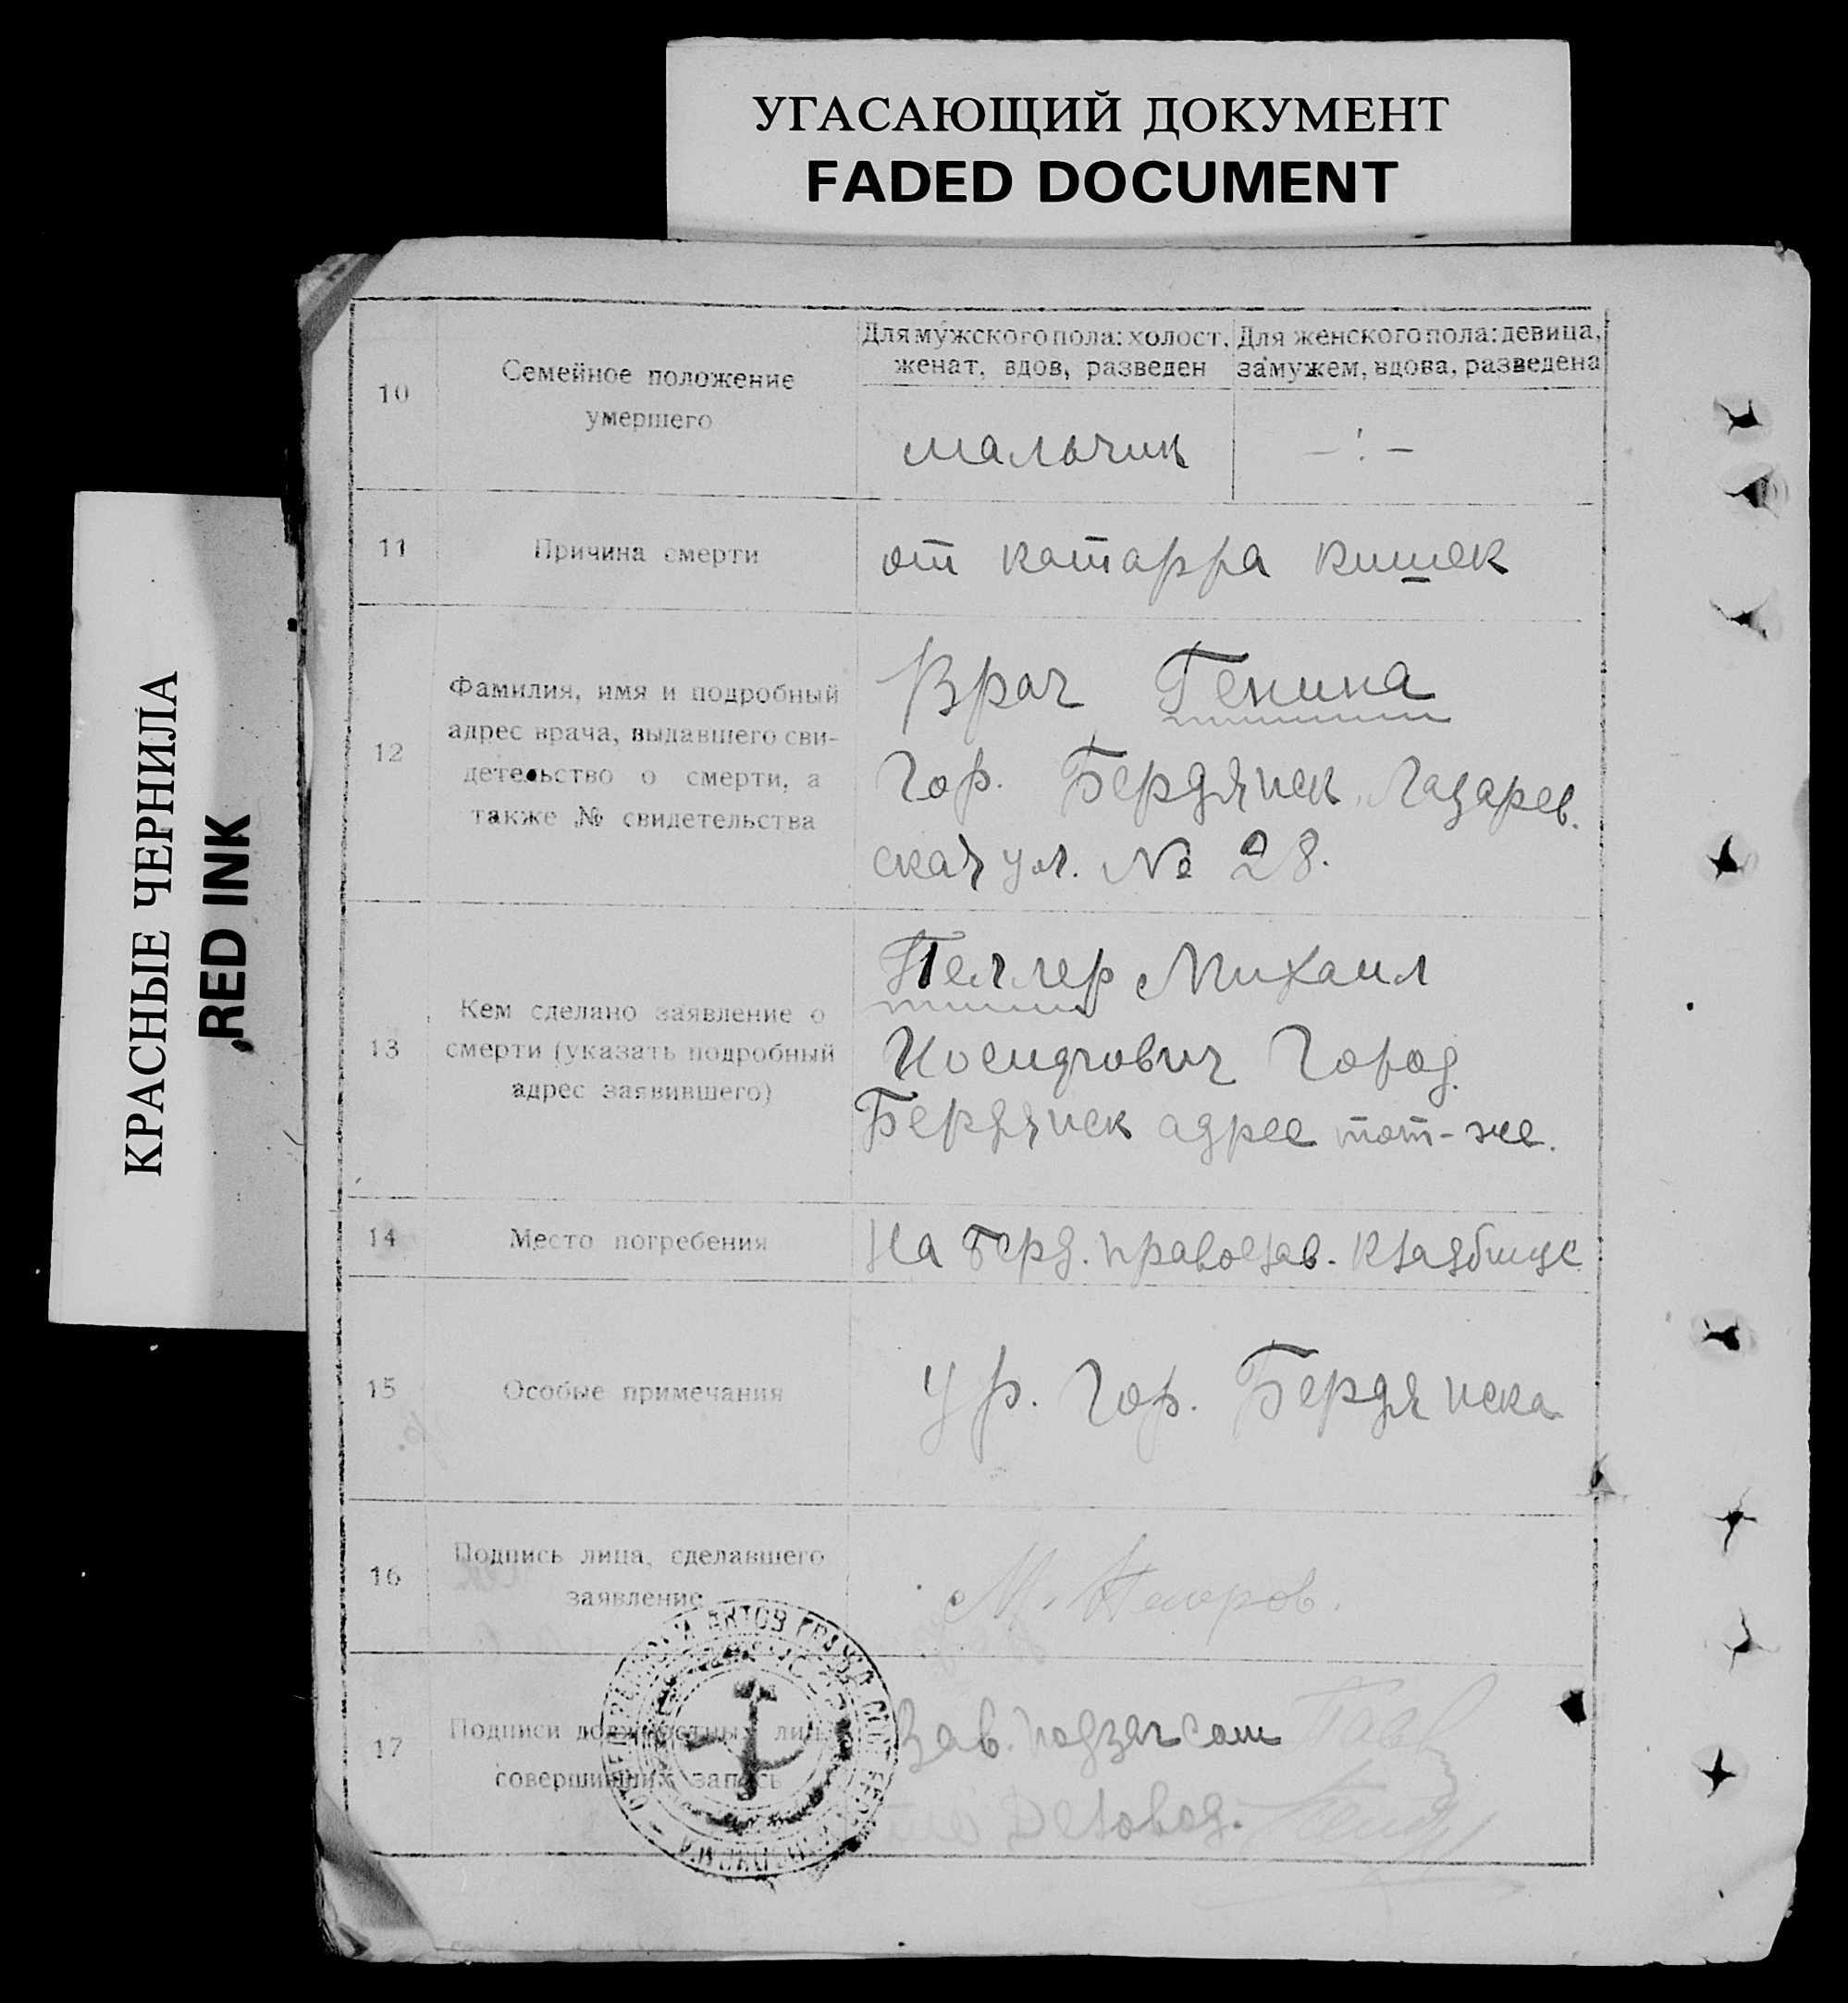 УГАСАЮЩИЙ ДОКУМЕНТ
FADED DOCUMENT
КРАСНЫЕ ЧЕРНИЛА
RED INK
10
Семейное положение
умершего
Для мужского пола: холост,
женат, вдов, разведен
Для женского пола: девица,
замужем, вдова, разведена
мальчик
— : —
11
Причина смерти
от катарра кишек
12
Фамилия, имя и подробный
адрес врача, выдавшего сви-
детельство о смерти, а
также № свидетельства
Врач Генина
Гор. Бердянск, Лазарев.
ская ул. № 28.
13
Кем сделано заявление о
смерти (указать подробный
адрес заявившего)
Михаил
Город.
Бердянск адрес тот-же.
14
Место погребения
На Берд. православ. кладбище
15
Особые примечания
ур. гор. Бердянска
16
Подпись лица, сделавшего
заявление
М.
17
Подписи должностных лиц,
совершивших запись
Зав. подзагсом
Деловод.